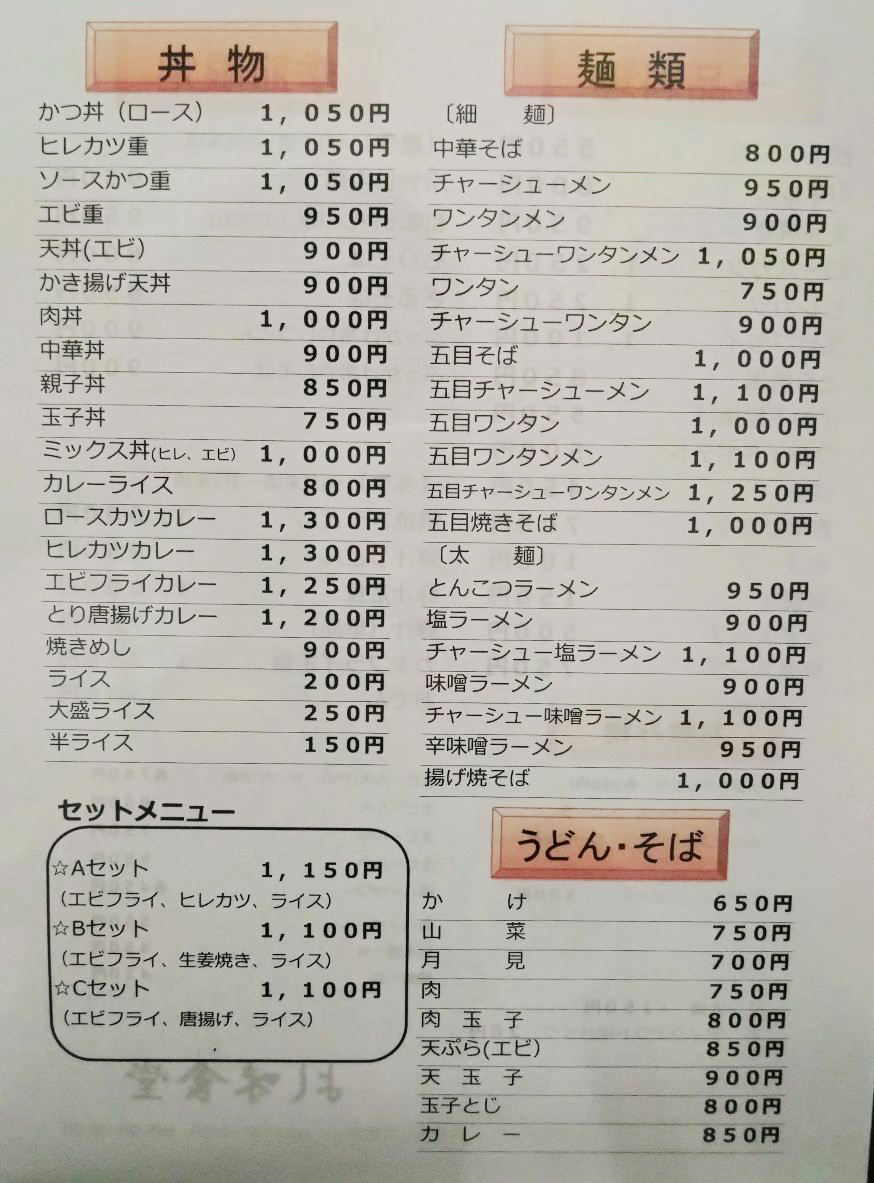 丼 物
かつ丼（ロース） 1，050円
ヒレカツ重 1，050円
ソースかつ重 1，050円
エビ重 950円
天丼(エビ） 900円
かき揚げ天丼 900円
肉丼 1，000円
中華丼 900円
親子丼 850円
玉子丼 750円
ミックス丼(ヒレ、エビ） 1，000円
カレーライス 800円
ロースカツカレー 1，300円
ヒレカツカレー 1，300円
エビフライカレー 1，250円
とり唐揚げカレー 1，200円
焼きめし 900円
ライス 200円
大盛ライス 250円
半ライス 150円
セットメニュー
☆Aセット 1，150円
（エビフライ、ヒレカツ、ライス）
☆Bセット 1，100円
（エビフライ、生姜焼き、ライス）
☆Cセット 1，100円
（エビフライ、唐揚げ、ライス）
麺 類
〔細 麺〕
中華そば 800円
チャーシューメン 950円
ワンタンメン 900円
チャーシューワンタンメン 1，050円
ワンタン 750円
チャーシューワンタン 900円
五目そば 1，000円
五目チャーシューメン 1，100円
五目ワンタン 1，000円
五目ワンタンメン 1，100円
五目チャーシューワンタンメン 1，250円
五目焼きそば 1，000円
〔太 麺〕
とんこつラーメン 950円
塩ラーメン 900円
チャーシュー塩ラーメン 1，100円
味噌ラーメン 900円
チャーシュー味噌ラーメン 1，100円
辛味噌ラーメン 950円
揚げ焼そば 1，000円
うどん・そば
か け 650円
山 菜 750円
月 見 700円
肉 750円
肉 玉 子 800円
天ぷら(エビ） 850円
天 玉 子 900円
玉子とじ 800円
カ レ ー 850円